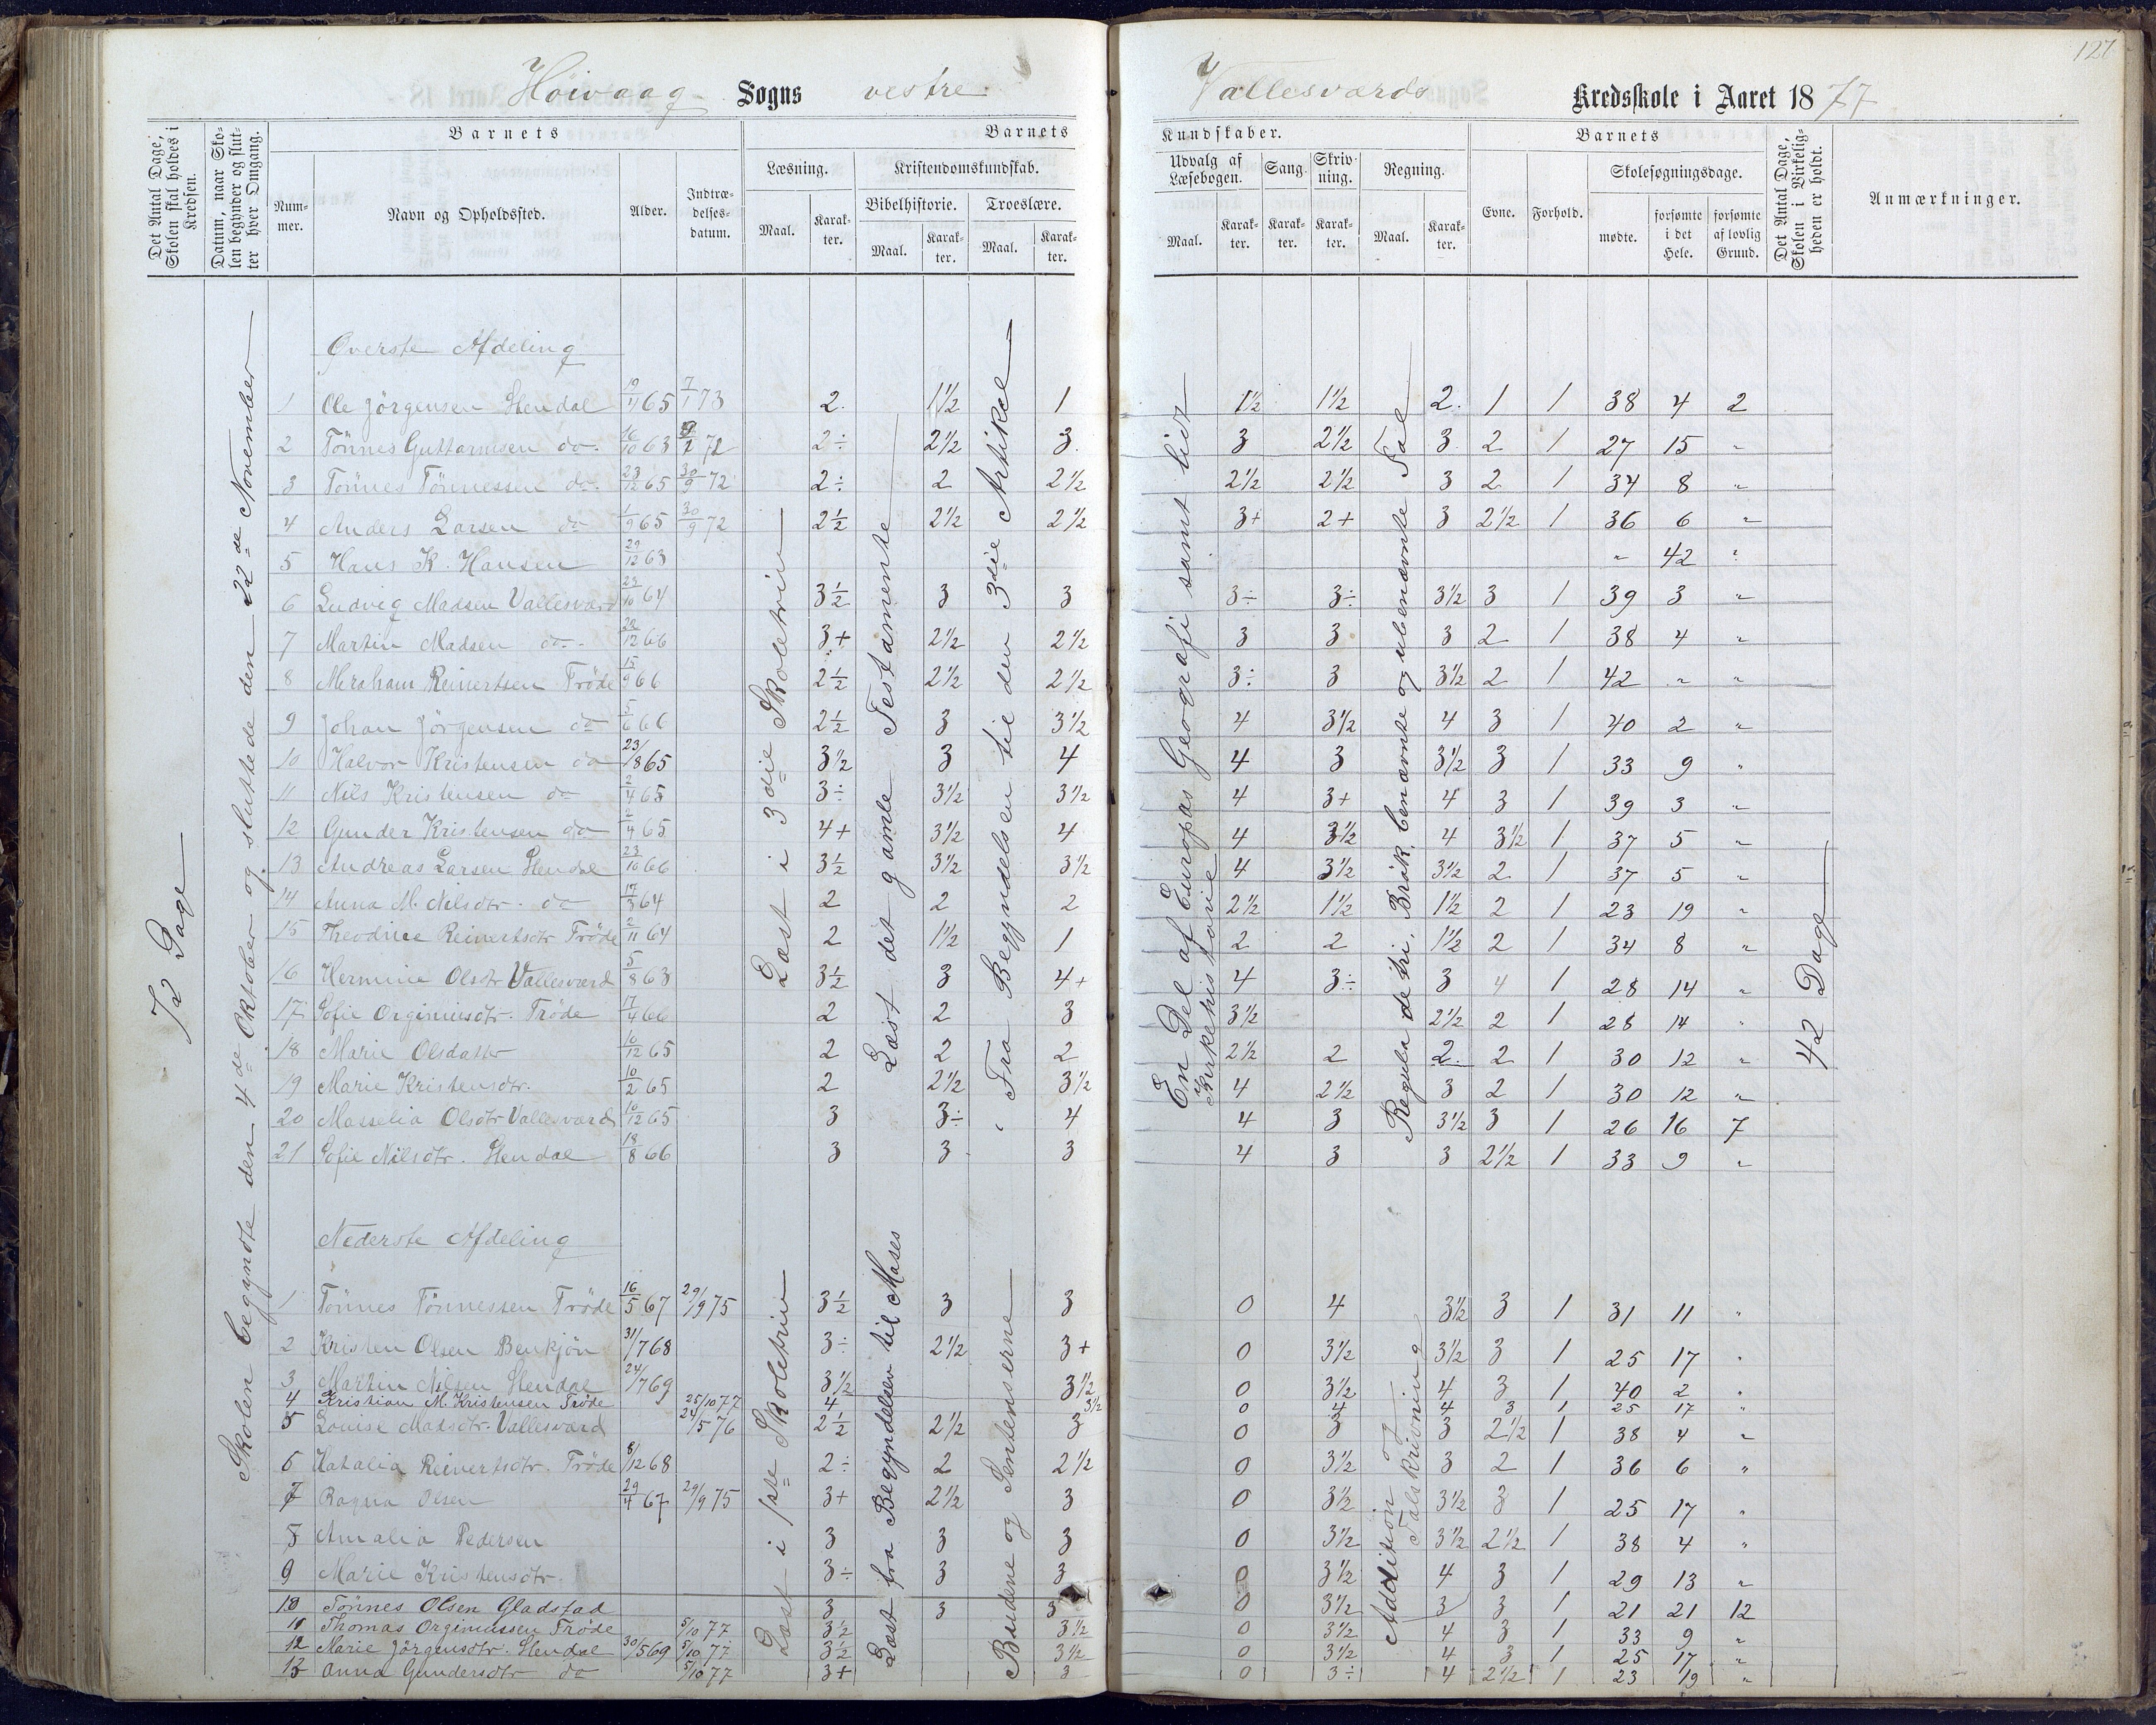 127
Høivaag Sogns vestre Vallesværds Kredsskole i Aaret 1877
Det Antal Dage, Skolen skal holdes i Kredsen.
Datum, naar Skolen begynder og slutter hver Omgang.
Barnets
Nummer.
Navn og Opholdssted.
Alder.
Indtrædelsesdatum.
Barnets
Læsning.
Maal.
Karakter.
Kristendomskundskab.
Bibelhistorie.
Maal.
Karakter.
Troeslære.
Maal.
Karakter.
Kundskaber.
Udvalg af Læsebogen.
Maal.
Karakter.
Sang.
Karakter.
Skrivning.
Karakter.
Regning.
Maal.
Karakter.
Barnets
Evne.
Forhold.
Skolesøgningsdage.
mødte.
forsømte i det Hele.
forsømte af lovlig Grund.
Det Antal Dage, Skolen i Virkeligheden er holdt.
Anmærkninger.
72 Dage
Skolen begyndte den 4de Oktober og sluttede den 22de November
Øverste Afdeling
Læst i 3die Skoletrin
Læst det gamle Testamente
Fra Begyndelsen til den 3die Artikel
En Del af Europas Geografi samt lidt Kirkehistorie
Regula de tri, Brøk, benævnte og ubenævnte Tal
42 Dage
1 Ole Jörgensen Stendal 19/11 65 7/1 73 2. 1½ 1 1½ 1½ 2. 1 1 38 4 2
2 Tönnes Guttormsen do 16/10 63 72 2÷ 2½ 3. 3 2½ 3 2 1 27 15 "
3 Tönnes Tönnessen do. 23/12 65 30/9 72 2÷ 2 2½ 2½ 2½ 3 2 1 34 8 "
4 Anders Larsen do 1/9 65 30/9 72 2½ 2½ 2½ 3+ 2+ 3 2½ 1 36 6 "
5 Hans K. Hansen 29/12 63 " 42 "
6 Ludvig Madsen Vallesværd 23/10 64 3½ 3 3 3÷ 3÷ 3½ 3 1 39 3 "
7 Martin Madsen do. 28/12 66 3+ 2½ 2½ 3 3 3 2 1 38 4 "
8 Abraham Reinertsen Tröde 15/9 66 2½ 2½ 2½ 3÷ 3 3½ 2 1 42 " "
9 Johan Jörgensen do 5/6 66 2½ 3 3½ 4 3½ 4 3 1 40 2 "
10 Halvor Kristensen do 23/8 65 3½ 3 4 4 3 3½ 3 1 33 9 "
11 Nils Kristensen do 2/4 65 3÷ 3½ 3½ 4 3+ 4 3 1 39 3 "
12 Gunder Kristensen do 2/4 65 4+ 3½ 4 4 3½ 4 3½ 1 37 5 "
13 Andreas Larsen Stendal 23/10 66 3½ 3½ 3½ 4 3½ 3½ 2 1 37 5 "
14 Anna M. Nilsdtr. do 17/3 64 2 2 2 2½ 1½ 1½ 2 1 23 19 "
15 Theodine Reinertsdtr Tröde 2/11 64 2 1½ 1 2 2 1½ 2 1 34 8 "
16 Hermine Olsdtr Vallesværd 5/8 63 3½ 3 4+ 4 3÷ 3 4 1 28 14 "
17 Sofie Orginiusdtr. Tröde 17/4 66 2 2 3 3½ 2½ 2 1 28 14 "
18 Marie Olsdatter 10/12 65 2 2 2 2½ 2 2. 2 1 30 12 "
19 Marie Kristensdtr. 10/2 65 2 2½ 3½ 4 2½ 3 2 1 30 12 "
20 Masselia Olsdtr Vallesværd 10/12 65 3 3÷ 4 4 3 3½ 3 1 26 16 7
21 Sofie Nilsdtr. Stendal 18/8 66 3 3 3 4 3 3 2½ 1 33 9 "
Nederste Afdeling
Læst i 1ste Skoletrin
Læst fra Begyndelsen til Moses
Budene og Sentenserne
Addition og Talskrivning
1 Tönnes Tönnessen Tröde 16/5 67 29/9 75 3½ 3 3 0 4 3½ 3 1 31 11 "
2 Kristen Olsen Benkjön 31/7 68 3÷ 2½ 3+ 0 3½ 3½ 3 1 25 17 "
3 Martin Nilsen Stendal 24/7 69 3½ 3½ 0 3½ 4 3 1 40 2 "
4 Kristian M. Kristensen Tröde 25/10 77 4 3½ 0 4 4 3 1 25 17 "
5 Louise Madsdtr. Vallesværd 24/5 76 2½ 2½ 3 0 3 3 2½ 1 38 4 "
6 Natalia Reinertsdtr. Tröde 8/12 68 2÷ 2 2½ 0 3½ 3 2 1 36 6 "
7 Ragna Olsen 29/4 67 29/9 75 3+ 2½ 3 0 3½ 3½ 3 1 25 17 "
8 Amalia Pedersen 3 3 3 0 3½ 3½ 2½ 1 38 4 "
9 Marie Kristensdtr. 3÷ 3 3 0 3½ 4 3 1 29 13 "
10 Tönnes Olsen Gladstad 3 3 3 0 3½ 3 3 1 21 21 12
11 Thomas Orginiussen Tröde 5/10 77 3½ 3½ 0 3½ 4 3 1 33 9 "
12 Marie Jörgensdtr. Stendal 30/5 69 5/10 77 3½ 3½ 0 3½ 4 3 1 25 17 "
13 Anna Gundersdtr do 5/10 77 3+ 3 0 3÷ 4 2½ 1 23 19 "